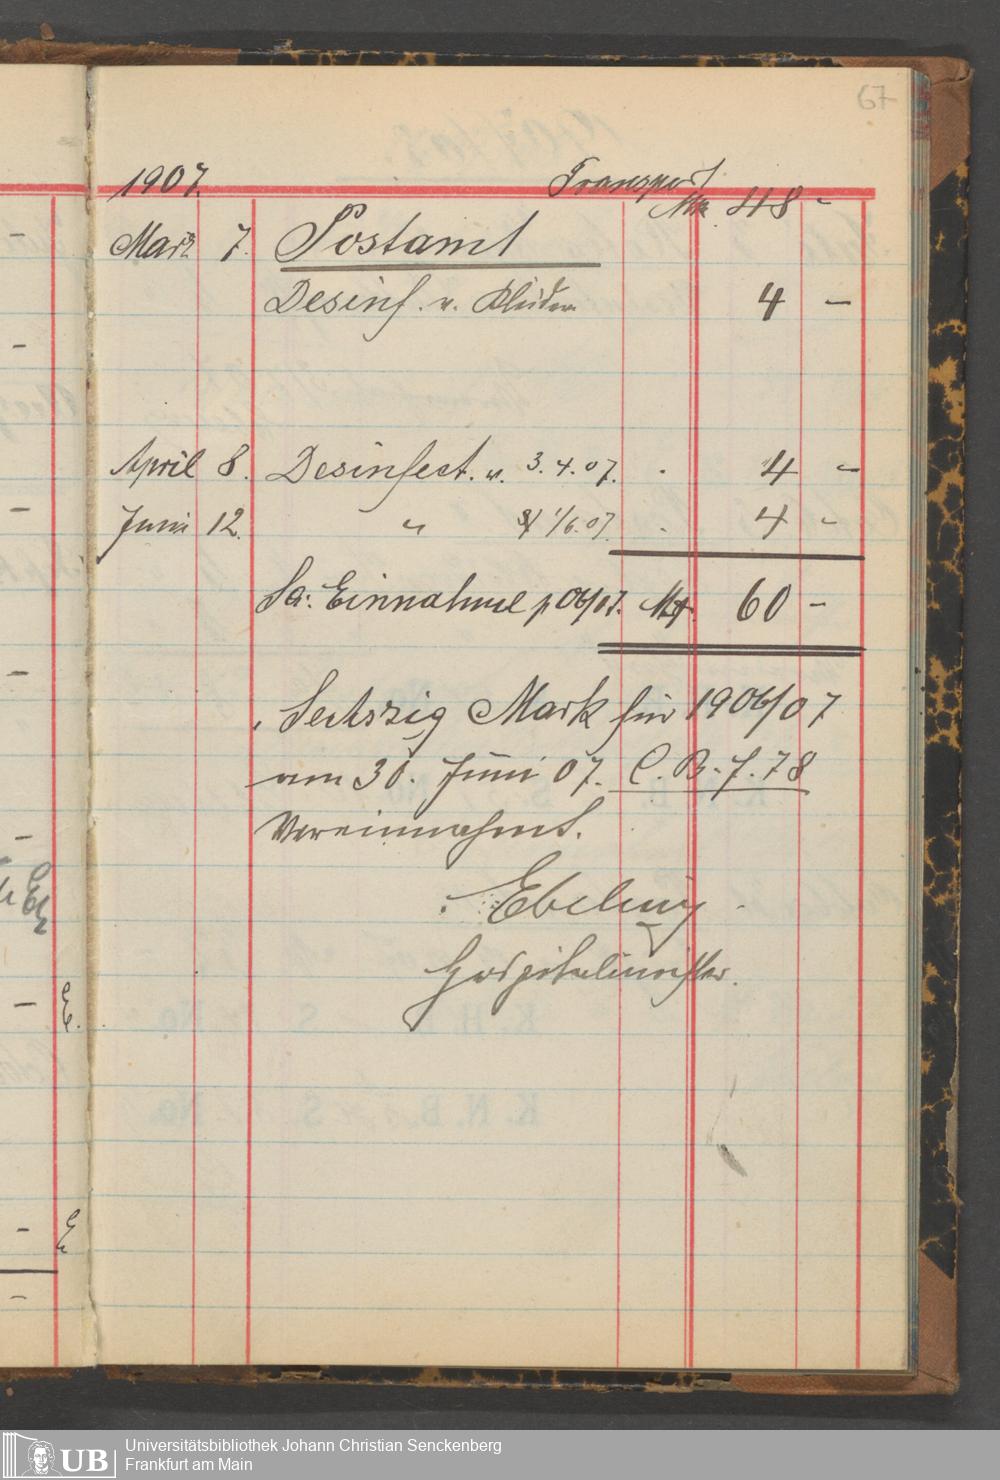 67
1907. Transport
Mk 48 -
März 7. Postamt
Desinf. v. Kleidern 4 -
April 8. Desinfect. v. 3.4.07. 4 -
Juni 12. " 1/6.07. 4 -
Sa: Einnahme p 06/07. Mk. 60 -
Sechszig Mark für 1906/07
am 30. Juni 07. C. B. f. 78
Vereinnahmt.
Ebeling
Hospitalmeister.
Universitätsbibliothek Johann Christian Senckenberg
Frankfurt am Main
UB